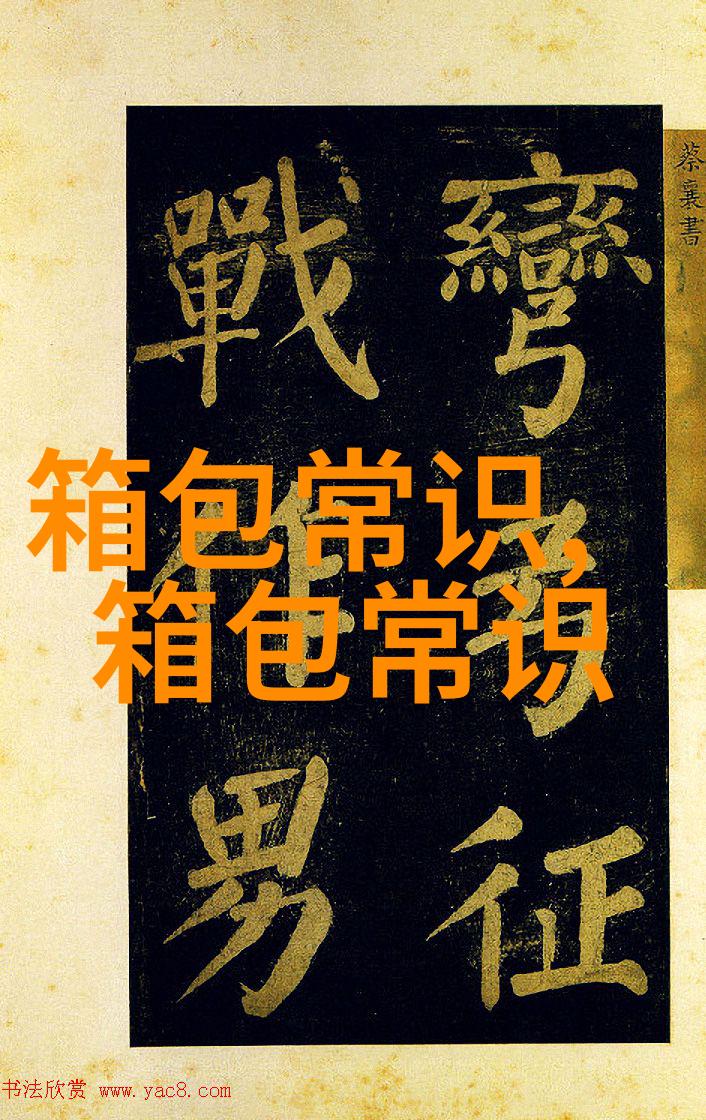 蔡襄書
彎弓征
戰作男
箱包常识,
箱包常识
书法欣赏 www.yac8.com